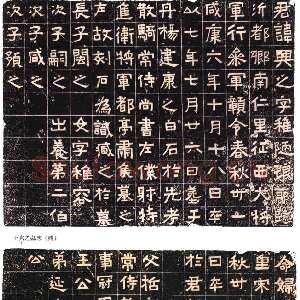 君諱興之字稚陋琅耶臨
沂都鄉南仁里征西大將
軍行參軍贛令春秋卅一
咸康六年十月十八日卒
以七年七月廿六日葬于
丹楊建康之白石於先考
散騎常侍尚書左僕射特
進衛將軍都亭肅侯墓之
左故刻石為識臧之於墓
長子閩之 女字稚容
次子嗣之 出養第二伯
次子咸之
次子預之
命婦
里宋
秋卅
日卒
於君
父哲
常侍
事冠
王公
弟延
公